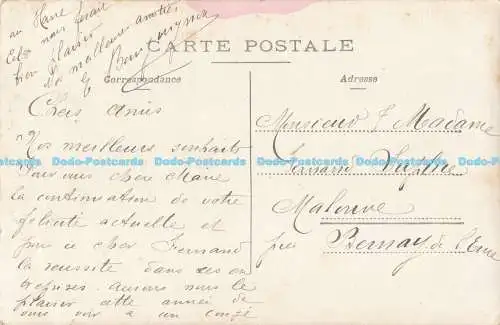 CARTE POSTALE
Correspondance
Adresse
Chers amis
Nos meilleurs souhaits
Pour vous chère Marie
la continuation de votre
félicité actuelle et
pour ce cher Fernand
la réussite dans ses en
treprises. aurons nous le
plaisir cette année de
vous voir à un congé
au Havre
nous ferait
bien plaisir
De meilleures amitiés
Monsieur & Madame
Fernand
Malouve
par Bernay de l'Eure
Dodo-Postcards Dodo-Postcards Dodo-Postcards Dodo-Postcards Dodo-Postcards
Dodo-Postcards Dodo-Postcards Dodo-Postcards Dodo-Postcards